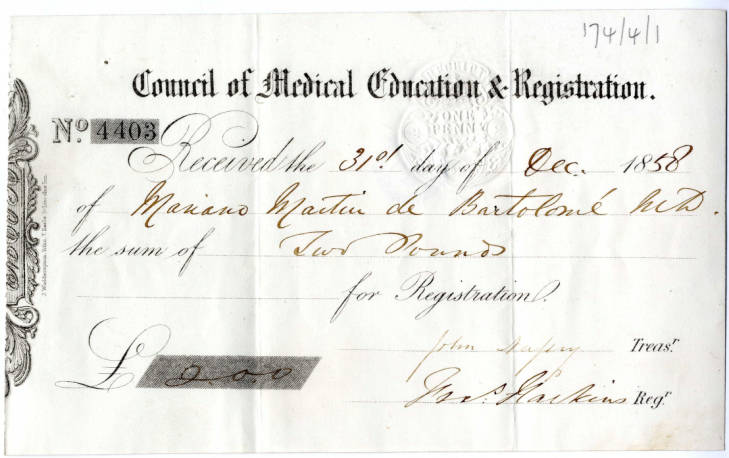 174/4/1
Council of Medical Education & Registration.
No. 4403
ONE
PENNY
Received the 31st day of Dec. 1858
of Mariano Martin de Bartolomé M.D.
the sum of Two Pounds
for Registration.
John Treasr.
£ 2.0.0
Hawkins Regr.